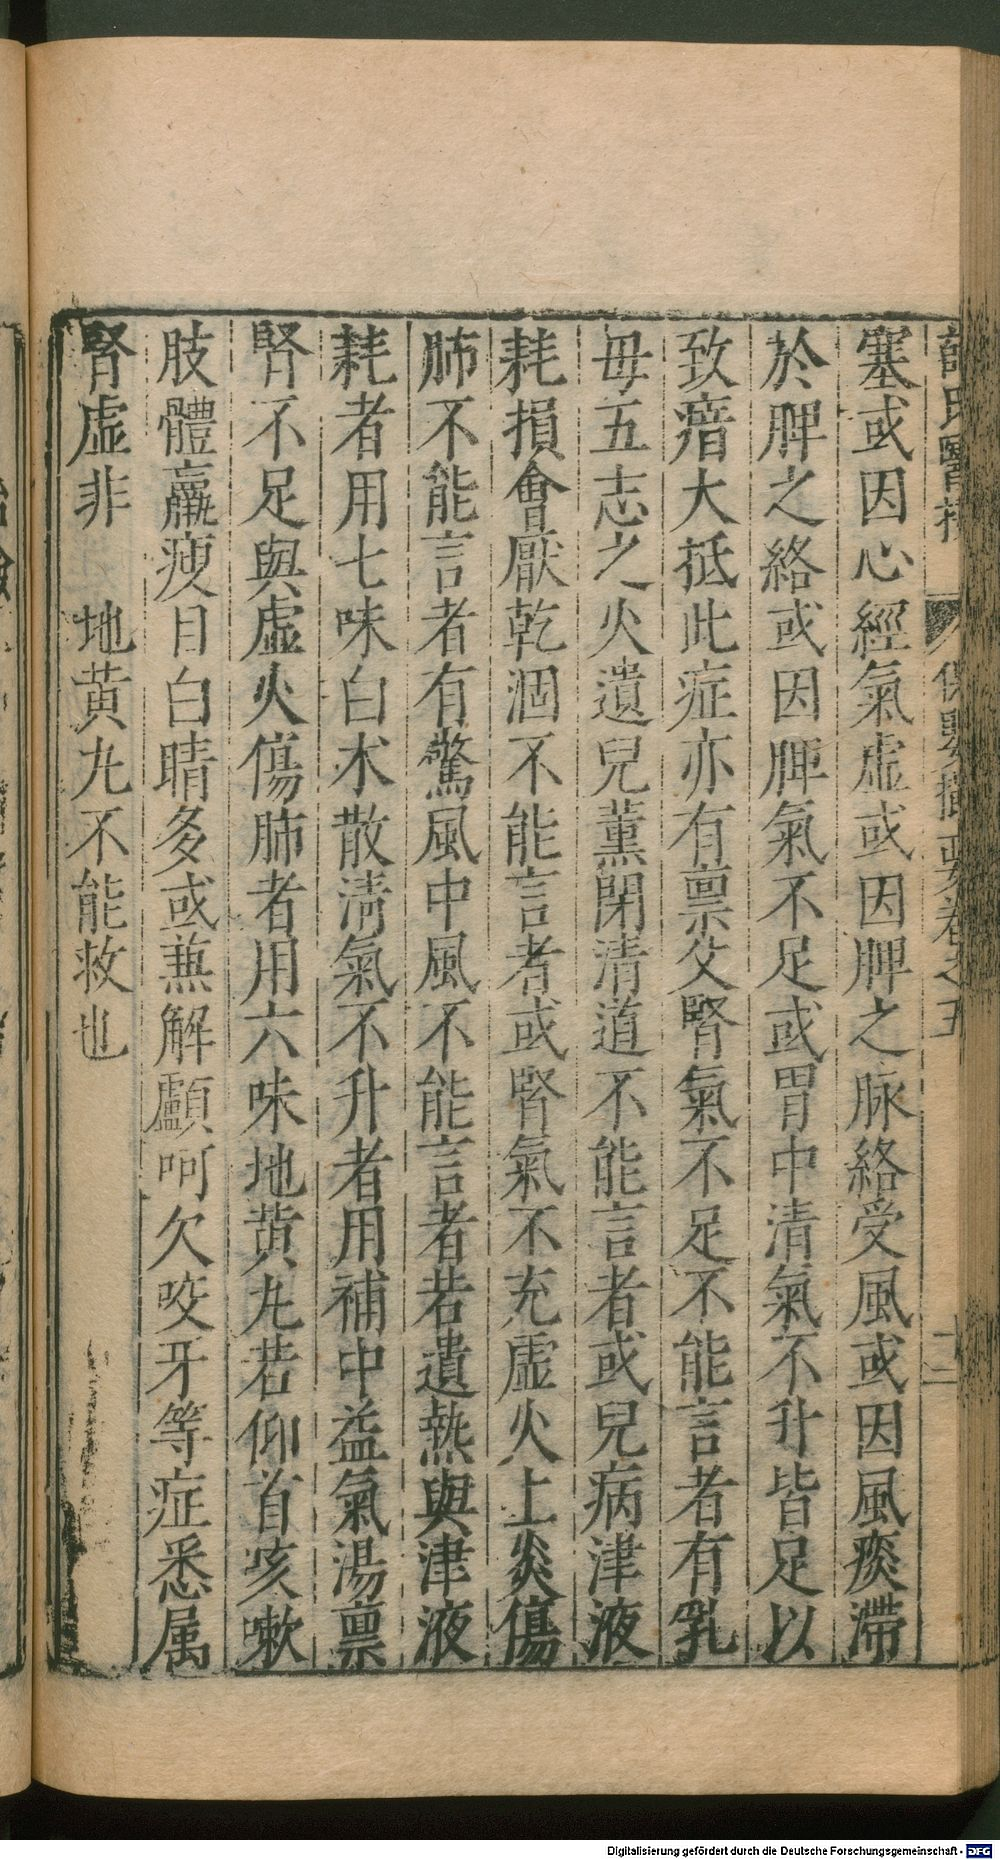 薛氏醫按 保嬰撮要卷之五 十二
塞或因心經氣虛或因脾之脉絡受風或因風痰滯
於脾之絡或因脾氣不足或胃中清氣不升皆足以
致瘖大抵此症亦有禀父腎氣不足不能言者有乳
母五志之火遺兒薰閉清道不能言者或兒病津液
耗損會厭乾涸不能言者或腎氣不充虛火上炎傷
肺不能言者有驚風中風不能言者若遺熱與津液
耗者用七味白术散清氣不升者用補中益氣湯禀
腎不足與虛火傷肺者用六味地黄丸若仰首欬嗽
肢體羸瘦目白睛多或兼解顱呵欠咬牙等症悉属
腎虛非 地黄丸不能救也
Digitalisierung gefördert durch die Deutsche Forschungsgemeinschaft - DFG